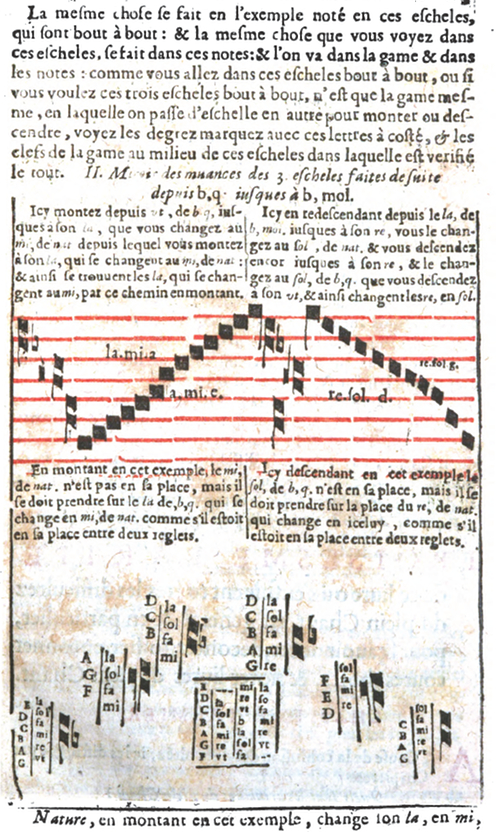 La mesme chose se fait en l'exemple noté en ces escheles,
qui sont bout à bout : & la mesme chose que vous voyez dans
ces escheles, se fait dans ces notes: & l'on va dans la game & dans
les notes : comme vous allez dans ces escheles bout à bout, ou si
vous voulez ces trois escheles bout à bout, n'est que la game mes-
me, en laquelle on passe d'eschelle en autre pour monter ou des-
cendre, voyez les degrez marquez auec ces lettres à costé, & les
clefs de la game au milieu de ces escheles dans laquelle est verifié
le tout. II. des muances des 3. escheles faites de suite
depuis b, q. iusques à b, mol.
Icy montez depuis vt, de b, q, ius-
ques à son la, que vous changez au
mi, de nat depuis lequel vous montez
à son la, qui se changent au mi, de nat :
& ainsi se trouuent les la, qui se chan-
gent au mi, par ce chemin en montant.
Icy en redescendant depuis le la, de
b, mol. iusques à son re, vous le chan-
gez au sol, de nat. & vous descendez
encor iusques à son re, & le chan-
gez au sol, de b, q. que vous descendez
à son vt, & ainsi changent les re, en sol.
la. mi. a
la. mi. e.
re. sol g.
re. sol. d.
En montant en cet exemple, le mi,
de nat. n'est pas en sa place, mais il
se doit prendre sur le la de b, q, qui se
change en mi, de nat. comme s'il estoit
en sa place entre deux reglets.
Icy descendant en cet exemple le
sol, de b, q. n'est en sa place, mais il se
doit prendre sur la place du re, de nat.
qui change en iceluy, comme s'il
estoit en sa place entre deux reglets.
D la
C sol
B fa
mi
D la
C sol
B fa
A mi
G re
A la
G sol
F fa
mi
F sol
E fa
D mi
re
E la
D sol
C fa
B mi
A re
G vt
E
D
C
B
A
G
F
C sol
B fa
A mi
G re
vt
Nature, en montant en cet exemple, change son la, en mi,